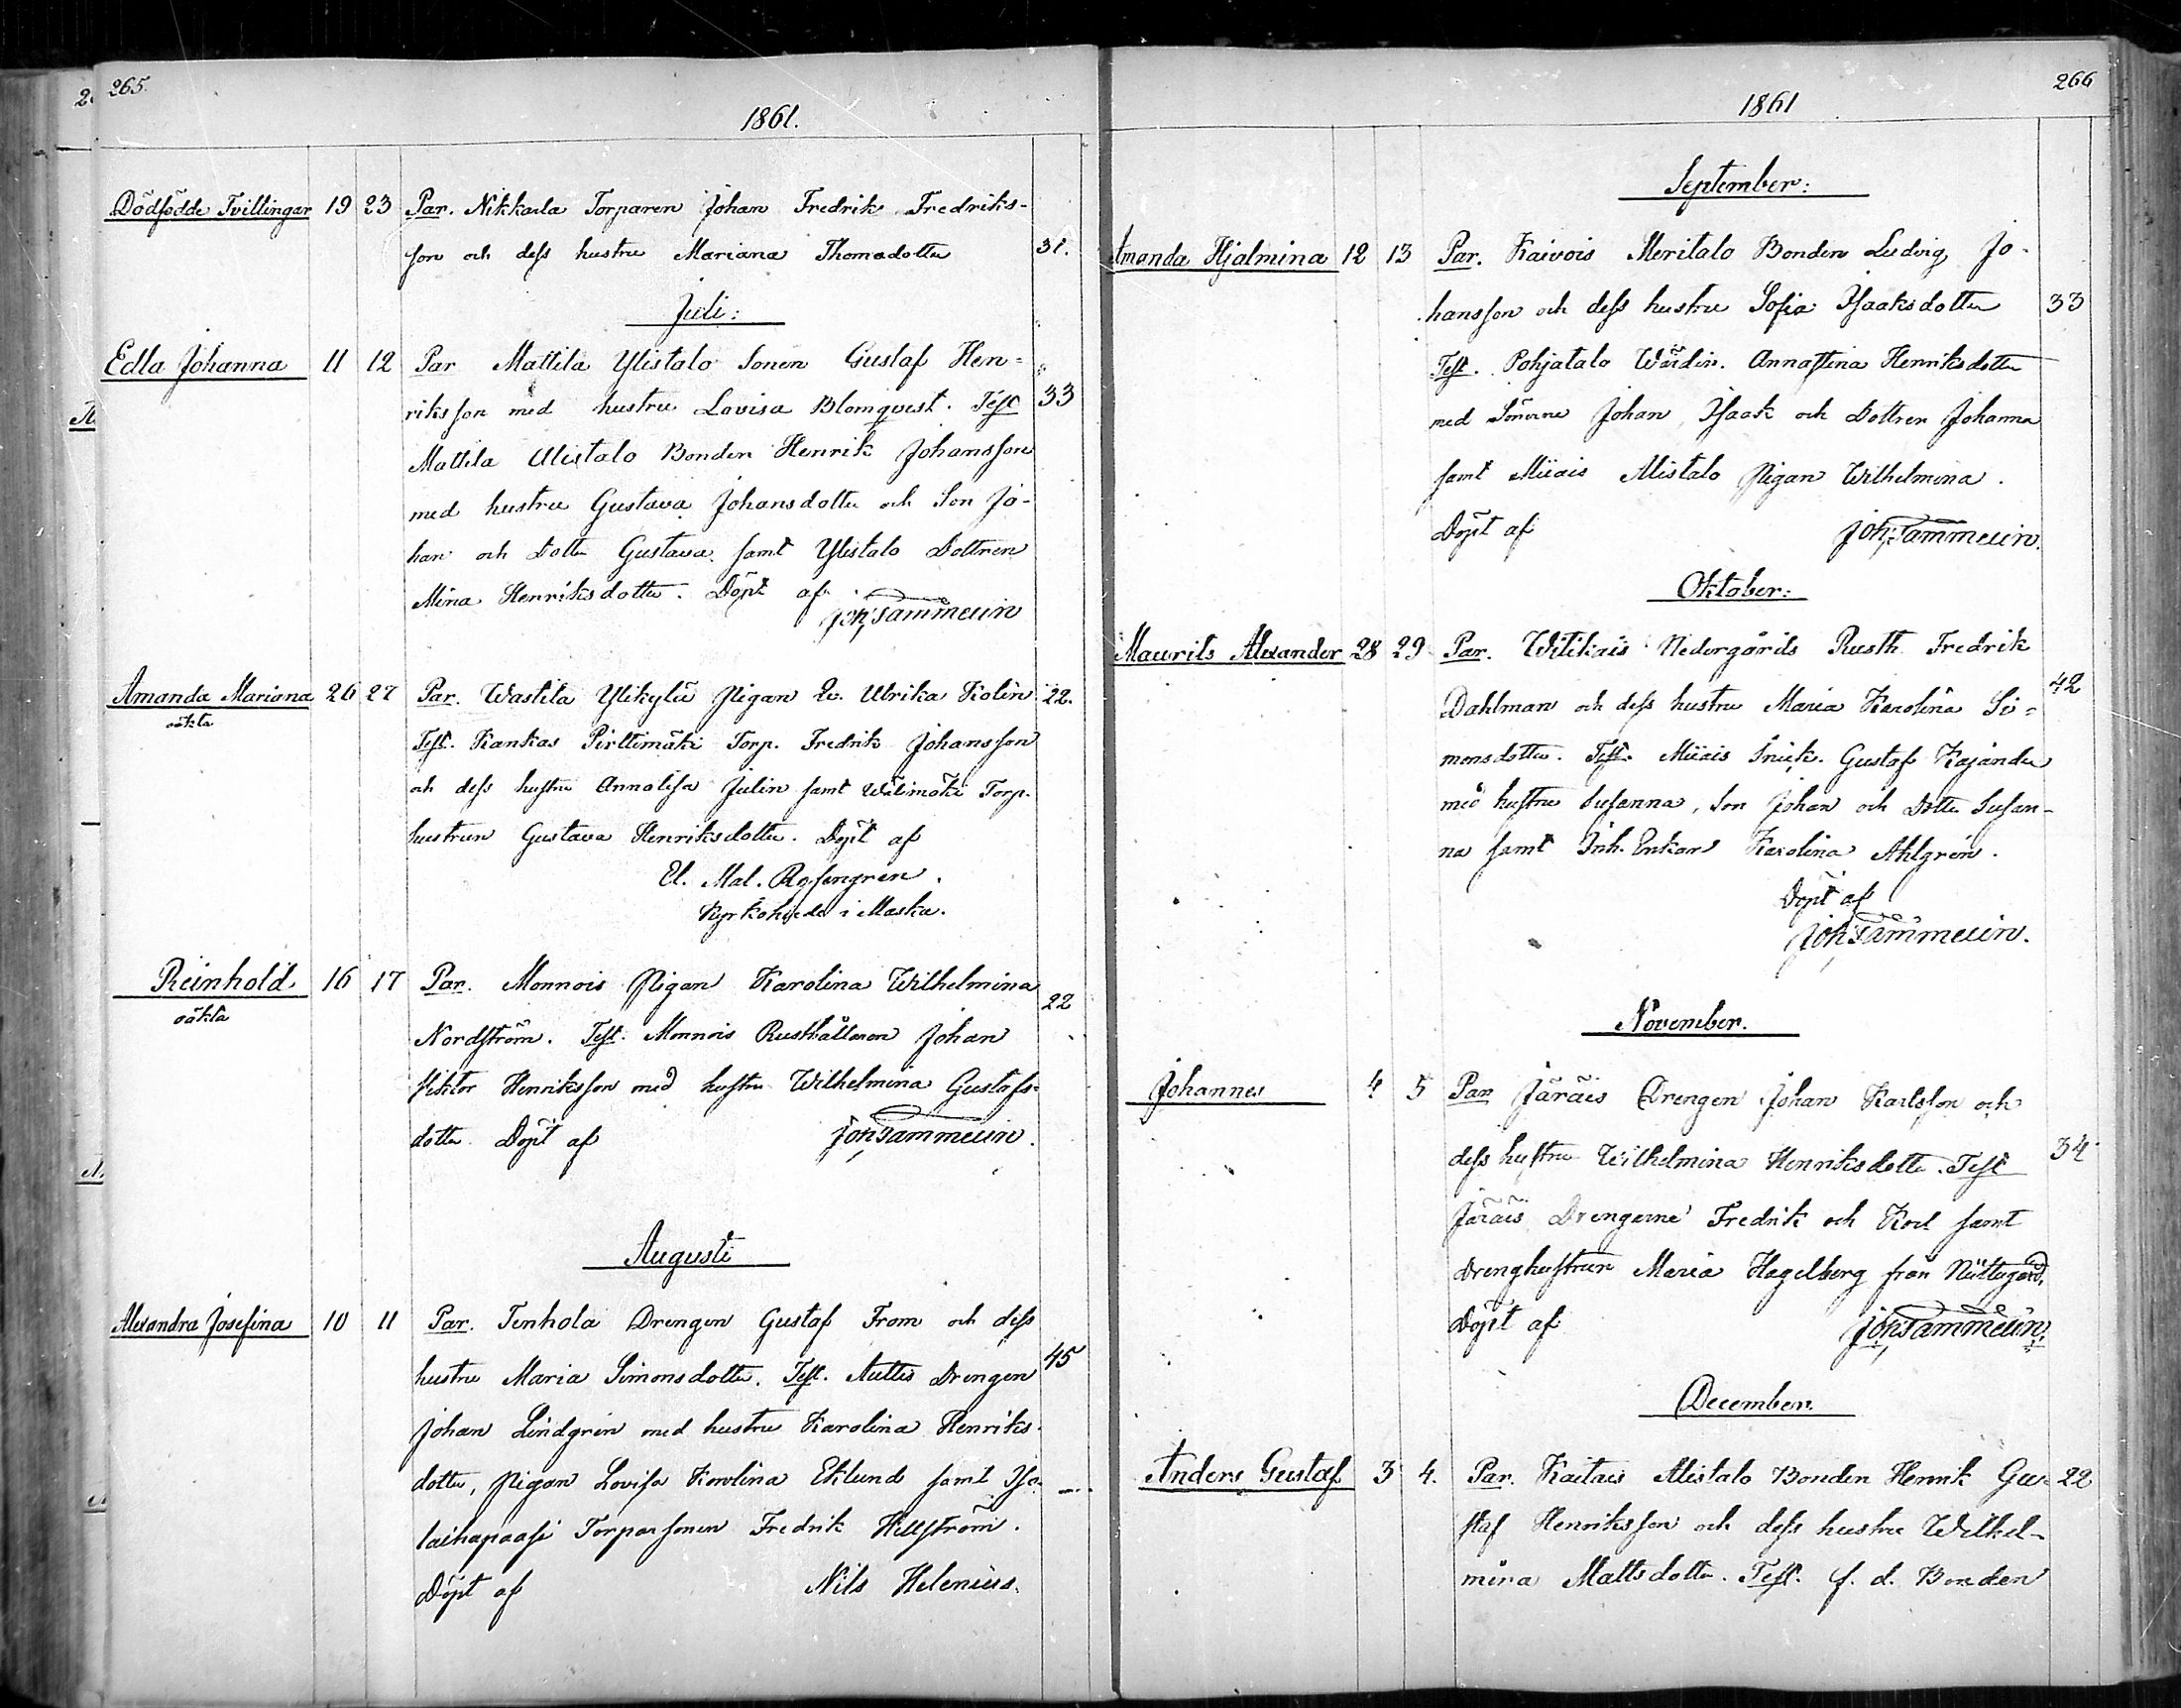 265.
1861.
Dödfödde Tvillingar 19 23 Par. Nikkarla Torparen Johan Fredrik Fredriks-
son och dess hustru Mariana Thomadotter 31.
Juli:
Edla Johanna 11 12 Par Mattila Ylistalo Sonen Gustaf Hen=
riksson med hustru Lovisa Blomqvist. Test 33
Mattila Alistalo Bonden Henrik Johansson
med hustru Gustava Johansdotter och Son Jo-
han och Dotter Gustava samt Ylistalo Dottren
Mina Henriksdotter. Döpt af
Joh. Tammelin
Amanda Mariana 26 27 Par. Wastila Ylikylä Pigan Qv. Ulrika Kolin 22.
oäkta
Test. Kankas Pirttimäki Torp. Fredrik Johansson
och dess hustru Annalisa Julin samt Wälimäki Torp.
hustrun Gustava Henriksdotter. Döpt af
El. Mal. Rosengren.
Kyrkoherde i Masku.
Reinhold 16 17 Par. Monnois Pigan Karolina Wilhelmina 22
oäkta
Nordström. Test. Monnois Rusthållaren Johan
Viktor Henriksson med hustru Wilhelmina Gustafs-
dotter. Döpt af Joh. Tammelin.
Augusti
Alexandra Josefina 10 11 Par. Tenhola Drengen Gustaf From och dess
hustru Maria Simonsdotter. Test. Auttis Drengen 45
Johan Lindgren med hustru Karolina Henriks-
dotter, Pigan Lovisa Karolina Eklund samt Iso-
laihapaasi Torparsonen Fredrik Hellström.
Döpt af Nils Helenius.
266
1861
September:
Amanda Hjalmina 12 13 Par. Kaivois Meritalo Bonden Ludvig Jo-
hansson och dess hustru Sofia Isaaksdotter 33
Test. Pohjatalo Wärdin. Annastina Henriksdotter
med Sönerne Johan, Isaak och Dottren Johanna
samt Miiais Alistalo Pigan Wilhelmina.
Döpt af Joh. Tammelin.
Oktober:
Maurits Alexander 28 29 Par. Witikais Nedergårds Rusth. Fredrik
Dahlman och dess hustru Maria Karolina Si= 42
monsdotter. Test. Miiais Snick. Gustaf Kajander
med hustru Susanna, Son Johan och Dotter Susan-
na samt Inh. Enkan Karolina Ahlgrén.
Döpt af
Joh. Tammelin.
November.
Johannes 4 5 Par Järäis Drengen Johan Karlsson och
dess hustru Wilhelmina Henriksdotter. Test 34
Järäis Drengarne Fredrik och Karl samt
Drenghustrun Maria Hagelberg från
Döpt af Joh. Tammelin.
December.
Anders Gustaf 3 4. Par. Kaitais Alistalo Bonden Henrik Gu- 22
staf Henriksson och dess hustru Wilhel-
mina Mattsdotter. Test. f. d. Bonden